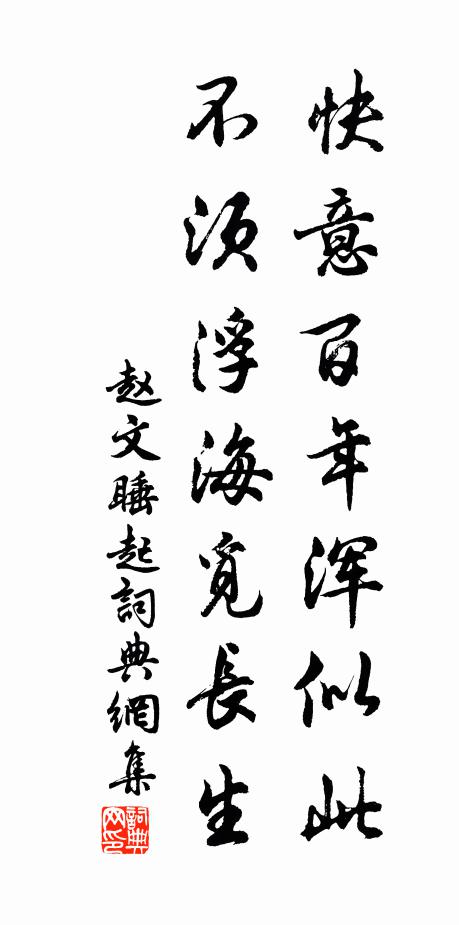 快意百年浑似此
不须浮海觅長生
赵文睡起詞典網集
詞典网印